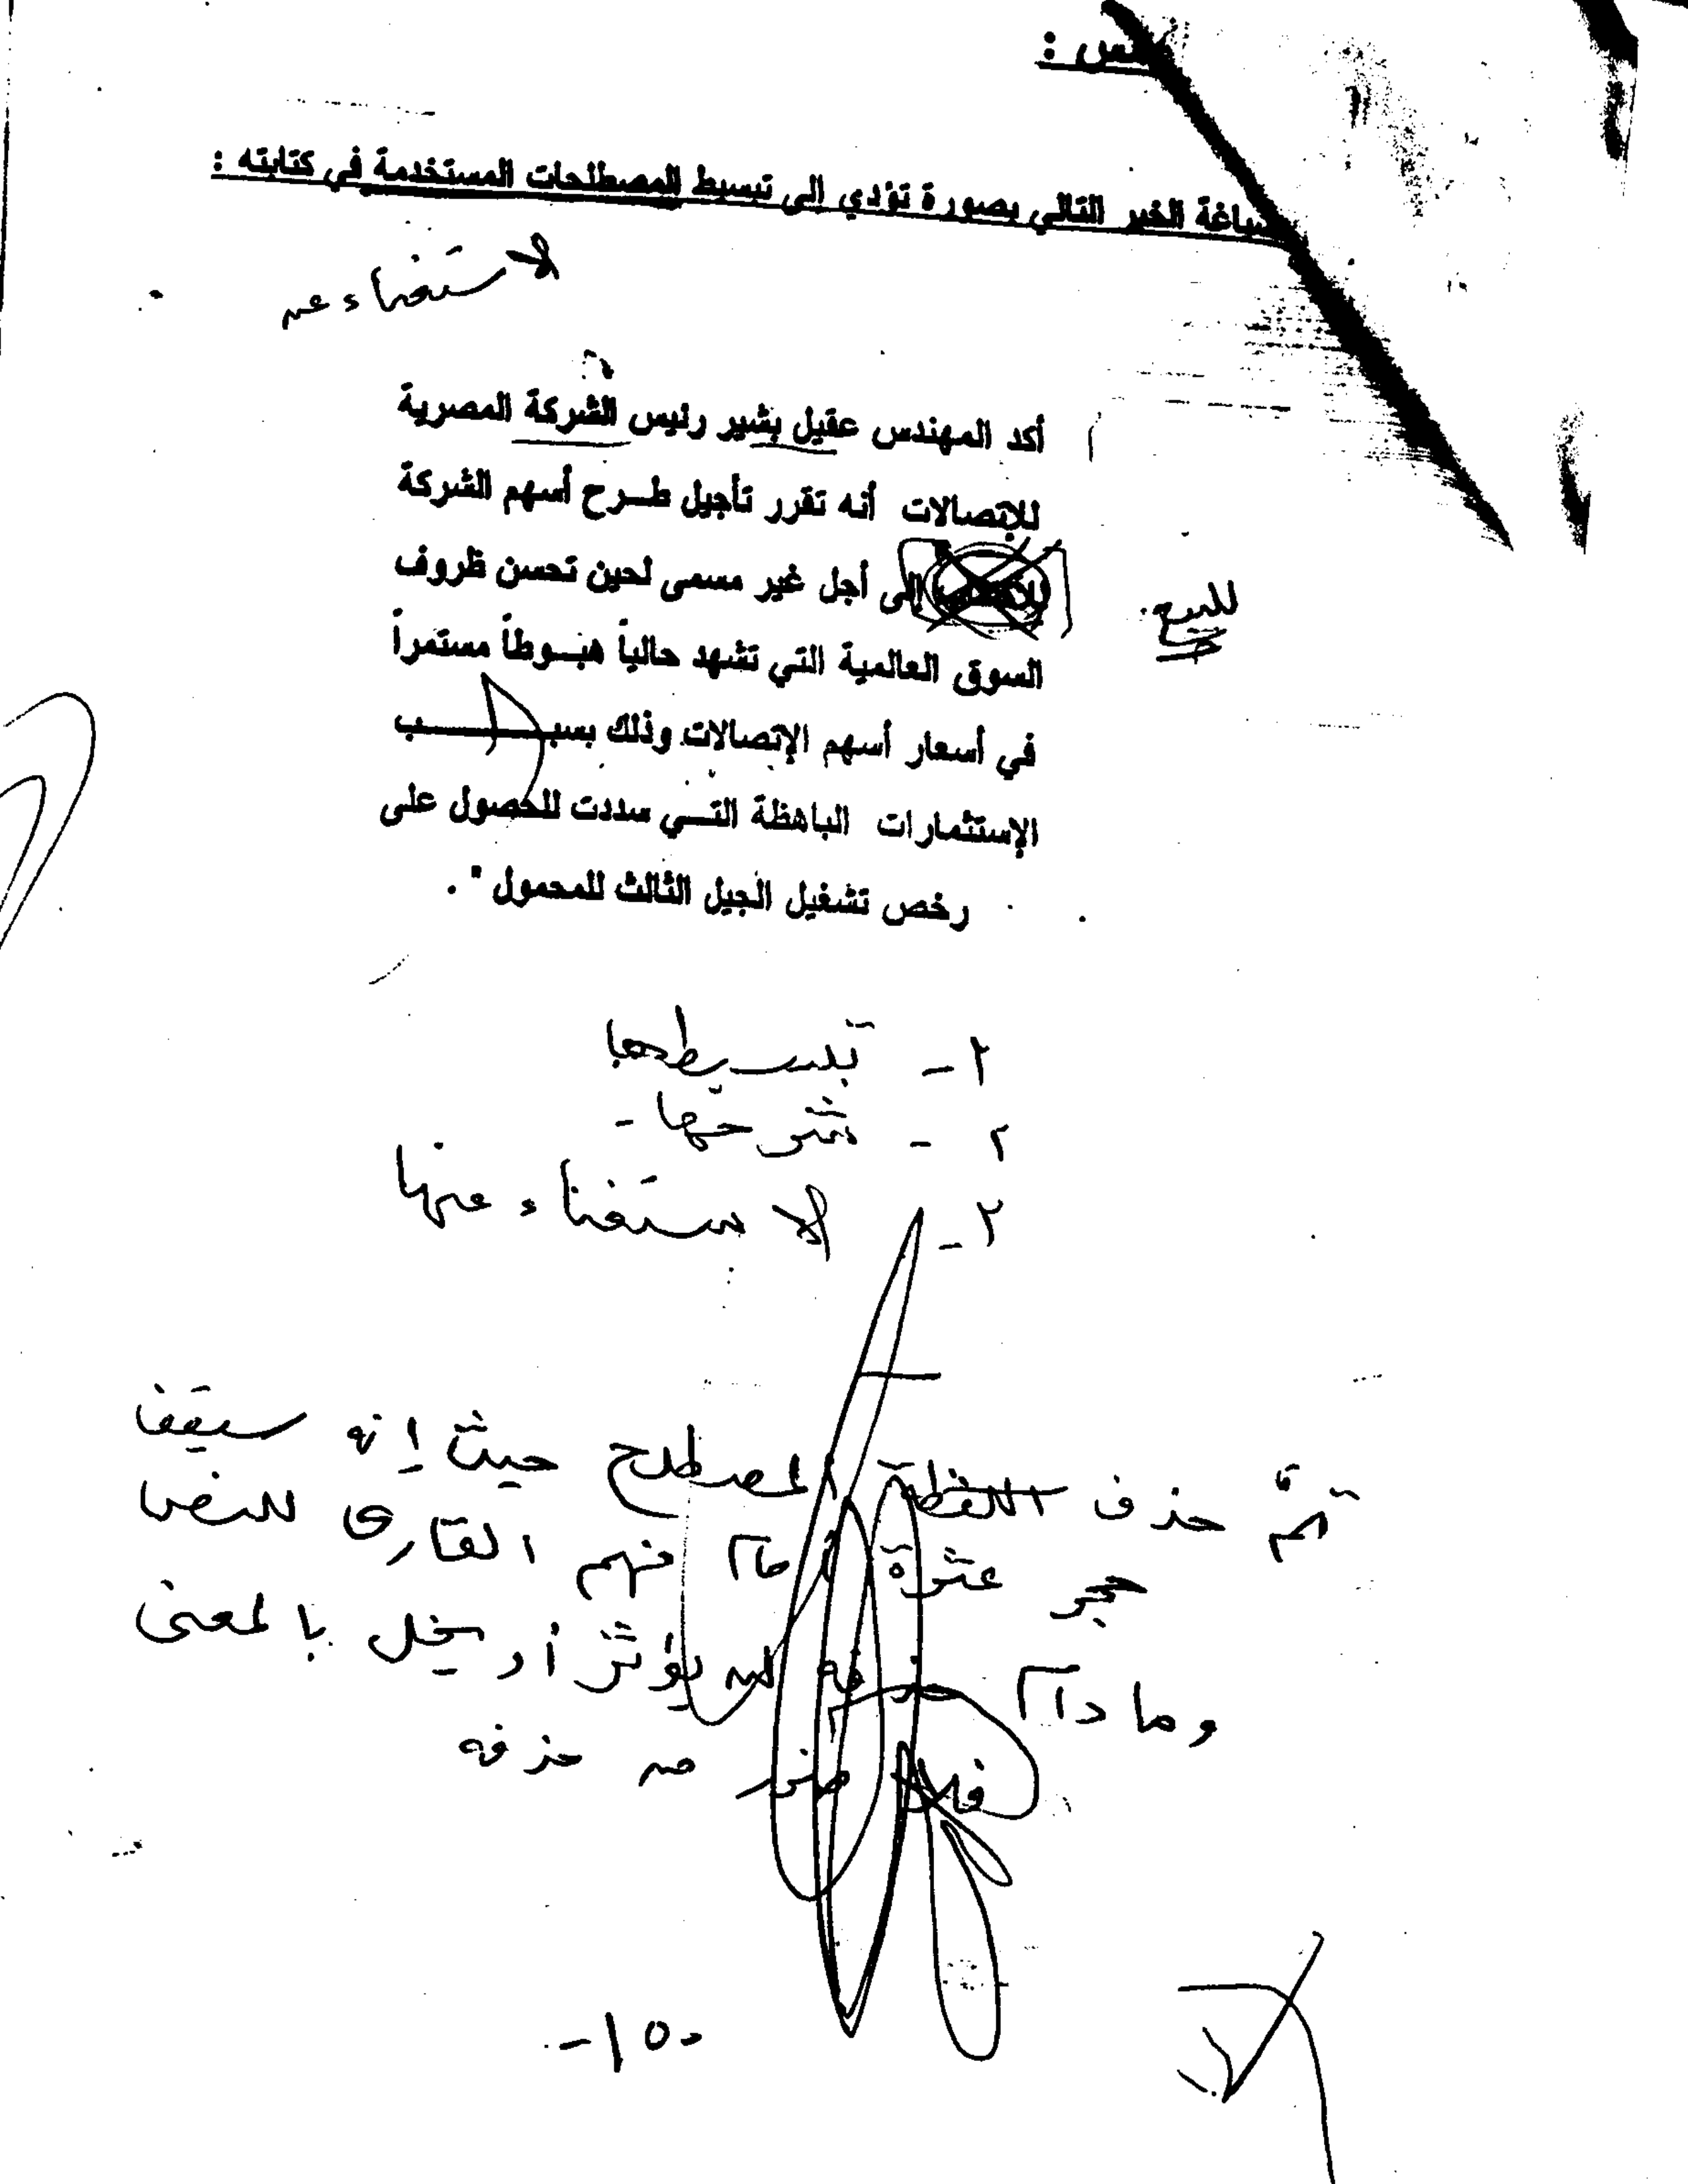 صياغة الخبر التالي بصورة تؤدي الى تبسيط المصطلحات المستخدمة في كتابته :
لاستغناء عن
أكد المهندس عقيل بشير رئيس الشركة المصرية
للإتصالات أنه تقرر تأجيل طرح أسهم الشركة
إلى أجل غير مسمى لحين تحسن ظروف
للبيع
السوق العالمية التي تشهد حالياً هبوطاً مستمراً
في أسعار أسهم الإتصالات وذلك بسبب
الإستثمارات الباهظة التي سددت للحصول على
رخص تشغيل الجيل الثالث للمحمول " .
١- تبسيطها
٢- شرحها -
٣- الاستغناء عنها
تم حذف المصطلح حيث إنه سيقف
حجر عثرة أمام فهم القارئ للنص
وما دام حذفه لن يؤثر أو يخل بالمعنى
فلا ضرر من حذفه
-١٥٠